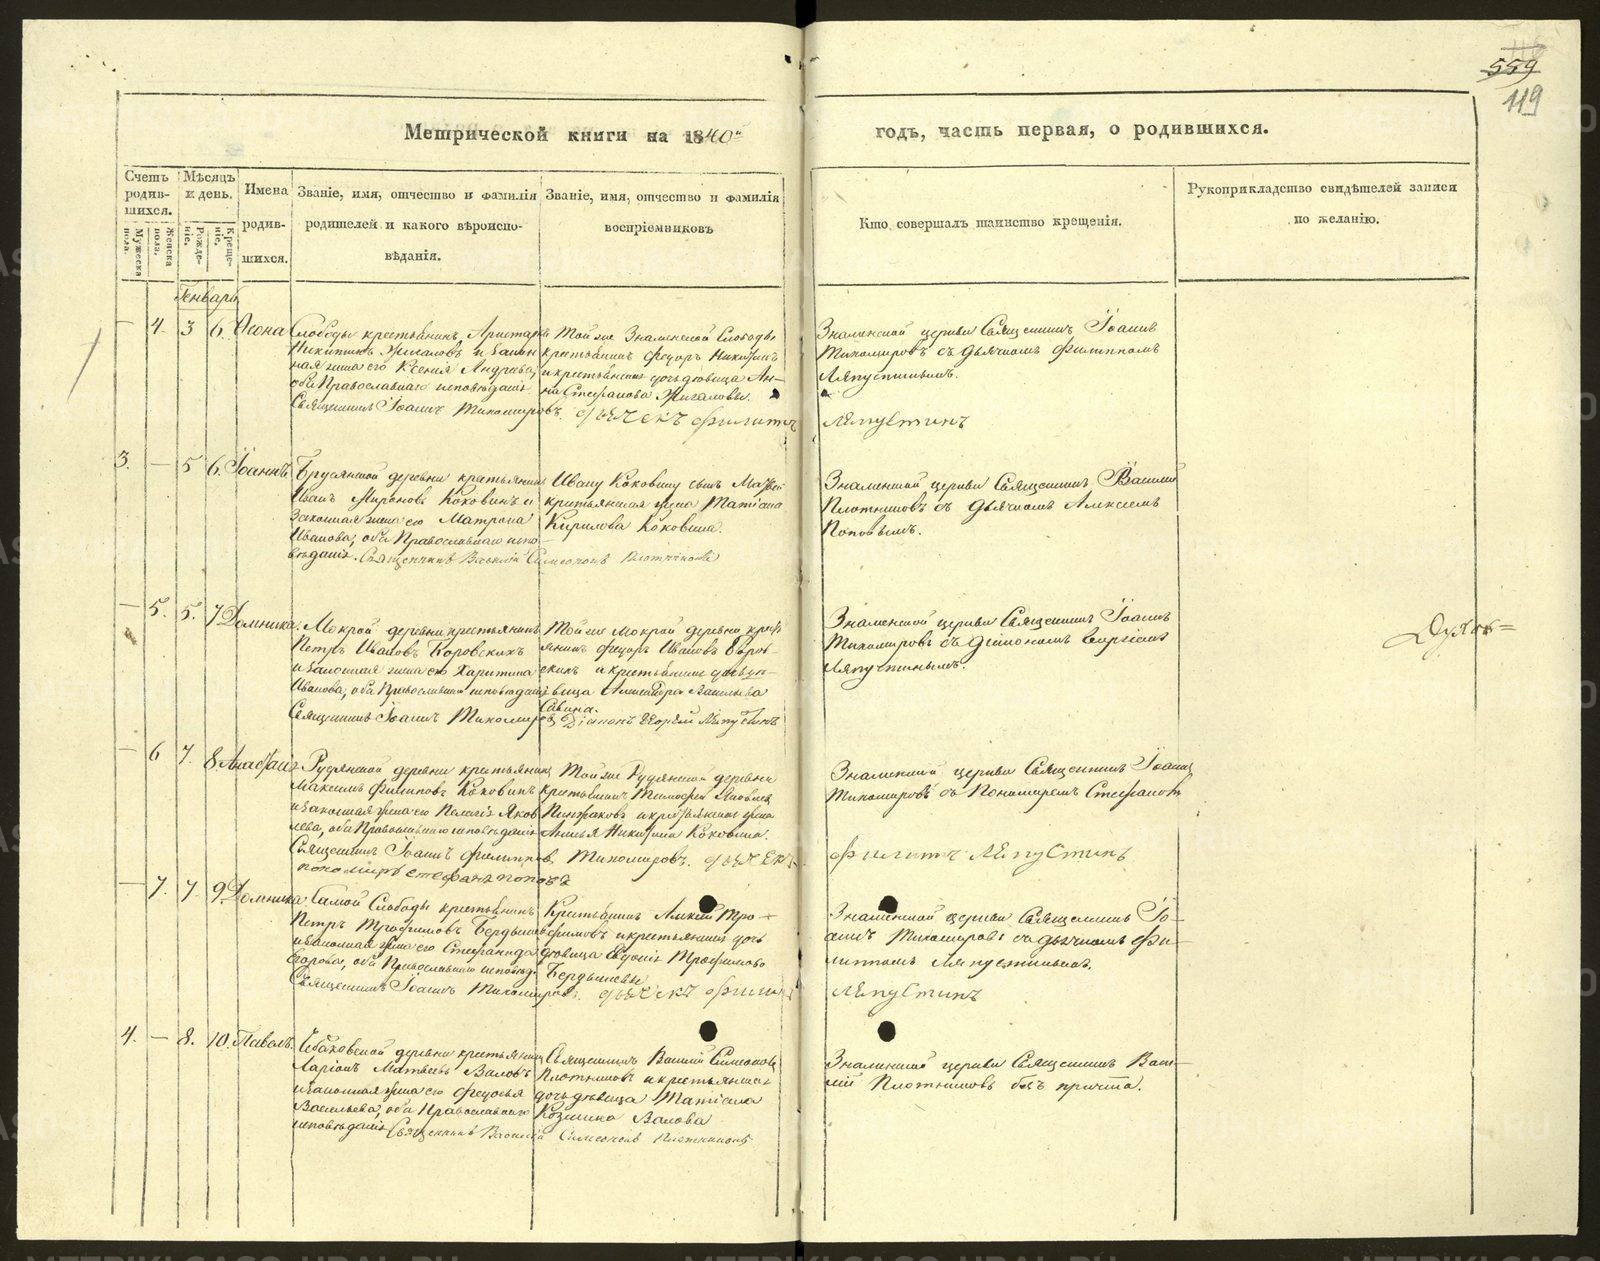 559
119
Метрической книги на 1840й
годъ, часть первая, о родившихся.
Счетъ родив-шихся.
Мужеска пола.
Женска пола.
Мѣсяцъ и день.
Рожде-ніе.
Креще-ніе.
Имена родив-шихся.
Званіе, имя, отчество и фамилія
родителей и какого вѣроиспо-
вѣданія.
Званіе, имя, отчество и фамилія
воспріемниковъ
Кто совершалъ таинство крещенія.
Рукоприкладство свидѣтелей записи
по желанію.
Генварь
— 4. 3 6.
Слободы крестьянинъ Аристархъ
Никитинъ Жигаловъ и закон
ная жена его Ксенія Андреева,
оба Православнаго исповѣданія
Священникъ Іоаннъ Тихомировъ. дьячекъ филиппъ
Той же Знаменской Слободы
крестьянинъ Федоръ Никитинъ
и крестьянская дочь девица Ан-
на Стефанова Жигаловы.
Знаменской церкви Священникъ Іоаннъ
Тихомировъ съ дьячкомъ Филиппомъ
Ляпустинымъ.
Ляпустинъ
3. — 5 6. Іоаннъ
Брусянской деревни крестьянинъ
Иванъ Мироновъ Коковинъ и
законная жена его Матрона
Иванова, оба Православнаго испо-
вѣданія. Священникъ Василій Симеоновъ Плотниковъ
Ивану Коковину сынъ
крестьянская жена Татіана
Кирилова Коковина.
Знаменской церкви Священникъ Василій
Плотниковъ съ дьячкомъ Алексѣемъ
Поповымъ.
— 5. 5. 7 Домника.
Мокрой деревни крестьянинъ
Петръ Ивановъ Боровскихъ
и законная жена его Харитина
Иванова, оба Православнаго исповѣданія
Священникъ Іоаннъ Тихомировъ Діаконъ Георгій Ляпустинъ
Той же Мокрой деревни крест
янинъ Федоръ Ивановъ Боров-
скихъ и крестьянская дочь
вица Александра Васильева
Савина.
Знаменской церкви Священникъ Іоаннъ
Тихомировъ съ Діакономъ Георгіемъ
Ляпустинымъ.
— 6 7. 8 Анастасія
Рудянской деревни крестьянинъ
Максимъ Филиповъ Коковинъ
и законная жена его Пелагія Яков
лева, оба Православнаго исповѣданія
Священникъ Іоаннъ Филипповъ Тихомировъ. дьячекъ
пономарь стефанъ поповъ
Той же Рудянской деревни
крестьянинъ Тимофей Яковлев
и крестьянская жена
Никитина Коковина.
Знаменской церкви Священникъ Іоаннъ
Тихомировъ съ Пономаремъ Стефаномъ
Филиппъ Ляпустинъ
— 7. 7. 9. Домника
Самой Слободы крестьянинъ
Петръ Трофимовъ Бердышев
и законная жена его Стефанида
Егорова, оба Православнаго исповѣд.
Священникъ Іоаннъ Тихомировъ. дьячекъ филип
Крестьянинъ Алексій Тро-
фимовъ и крестьянская дочь
девица Евдокія Трофимова
Бердышевы
Знаменской церкви Священникъ Іо-
аннъ Тихомировъ съ дьячкомъ Фи-
липпомъ Ляпустинымъ.
Ляпустинъ
4. — 8. 10. Павелъ.
деревни крестьянинъ
Ларіонъ Матвеевъ Валовъ
и законная жена его Федосья
Васильева, оба Православнаго
исповѣданія Священникъ Василій Симеоновъ Плотниковъ
Священникъ Василій Симеоновъ
Плотниковъ и крестьянская
дочь девица Татіана
Козмина Валова
Знаменской церкви Священникъ Васи-
лій Плотниковъ безъ причта.